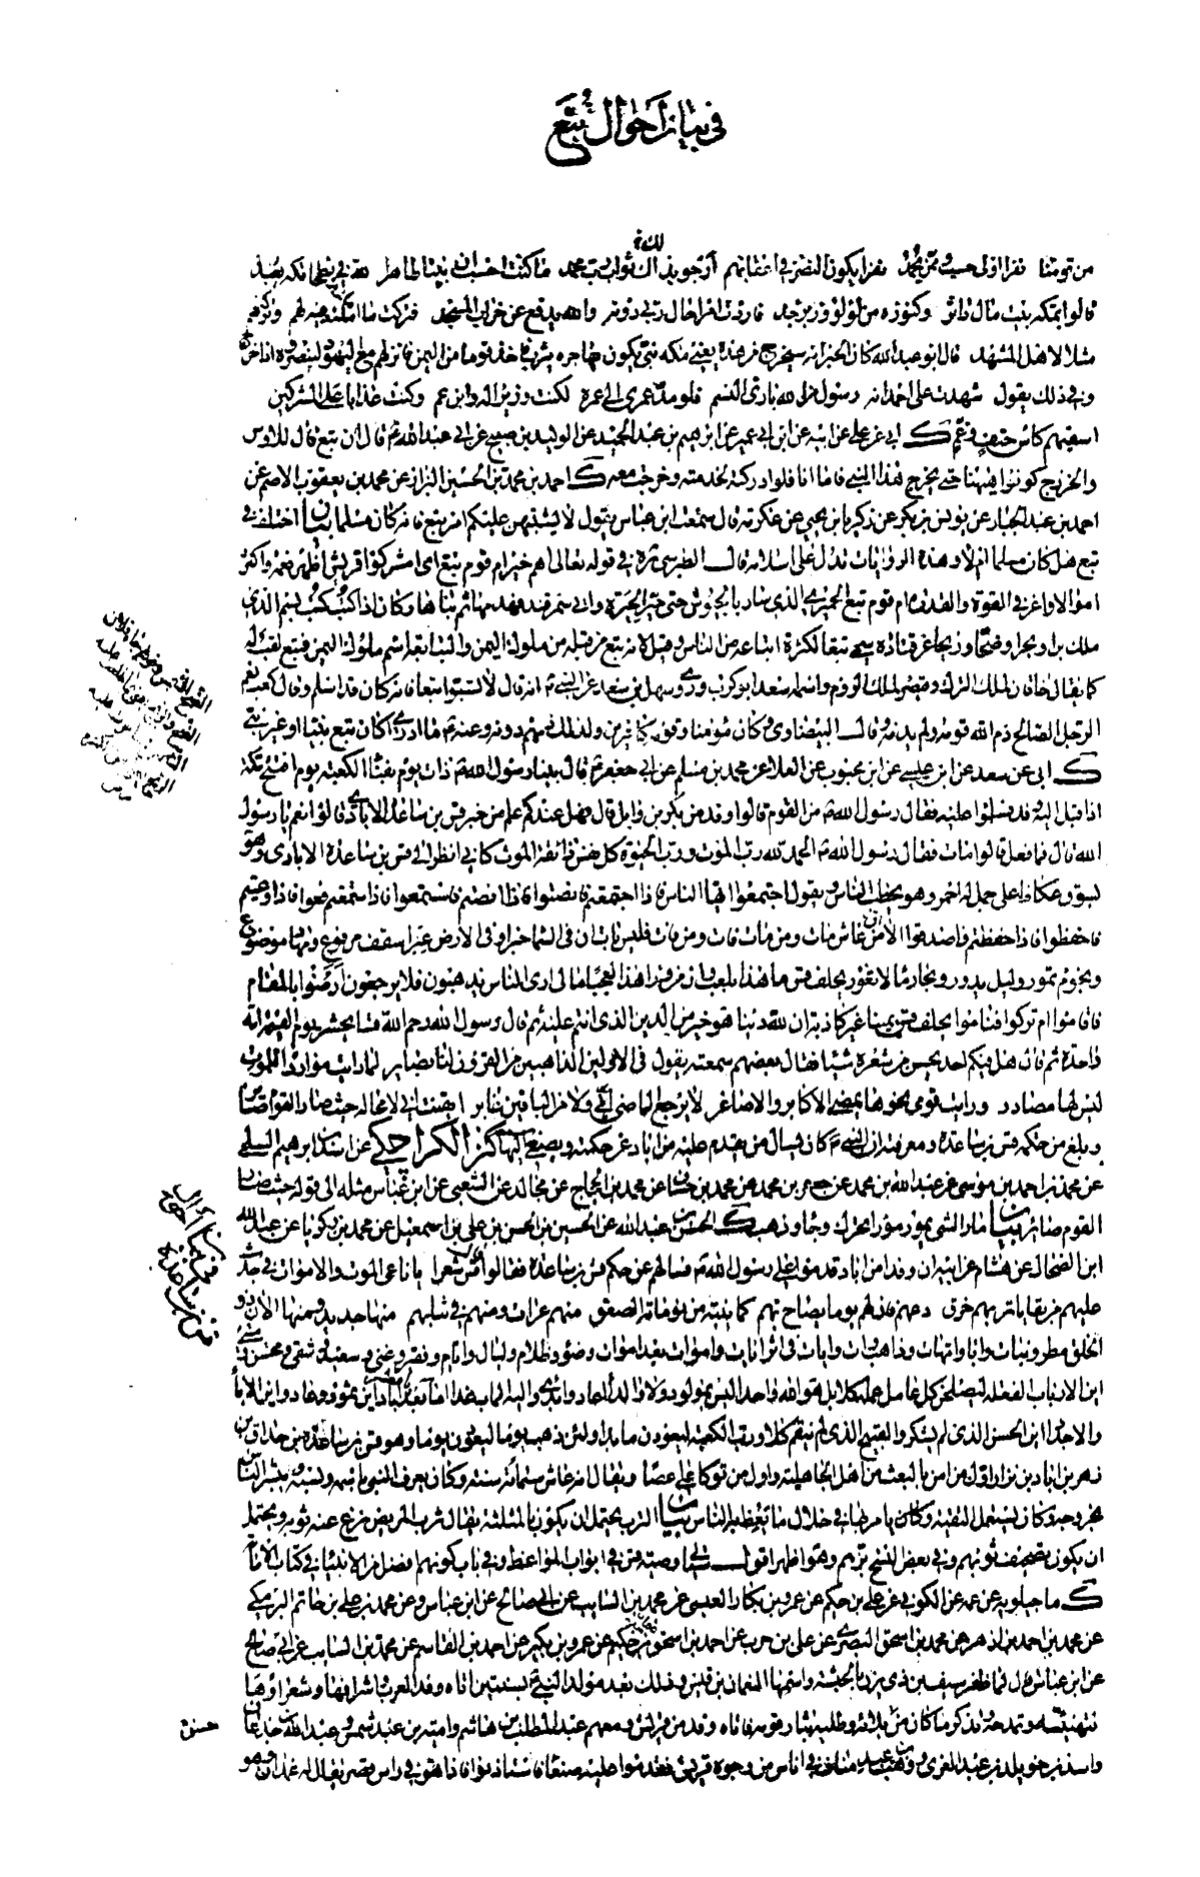 في بيان أحوال تبع
من قومنا نفرا اولى حسب وممن يحمد نفرا يكون النصر في اعقابهم أرجو بذاك ثواب رب محمد ما كنت احسب ان بيتا ظاهرا لله في بطحاء مكة يعبد
قالوا بمكة بيت مال داثر وكنوزه من لؤلؤ وزبرجد فاردت امرا حال ربي دونه والله يدفع عن خراب المسجد فتركت ما املته فيه لهم وتركتهم
مثلا لاهل المشهد قال ابو عبد الله كان الخبر انه سيخرج من هذه يعني مكة نبي يكون مهاجره يثرب فاخذ قوما من اليمن فانزلهم مع اليهود لينصروه اذا خرج
وفي ذلك يقول شهدت على احمد انه رسول من الله بارئ النسم فلو مد عمري الى عمره لكنت وزيرا له وابن عم وكنت عذابا على المشركين
اسقيهم كاس حتف وغم ك ابي عن علي عن ابيه عن ابن ابي عمير عن ابرهيم بن عبد الحميد عن الوليد بن صبيح عن ابي عبد الله ع قال ان تبع قال للاوس
والخزرج كونوا هيهنا حتى يخرج هذا النبي فاما انا فلو ادركته لخدمته وخرجت معه ك احمد بن محمد بن الحسين البزاز عن محمد بن يعقوب الاصم عن
احمد بن عبد الجبار عن يونس بن بكر عن زكريا بن يحيى عن عكرمة قال سمعت ابن عباس يقول لا يشتبهن عليكم امر تبع فانه كان مسلما بيان اختلف في
تبع هل كان مسلما ام لا وهذه الروايات تدل على اسلامه قال الطبرسي ره في قوله تعالى اهم خير ام قوم تبع اى امشركوا قريش اظهر نعمة واكثر
اموالا واعز في القوة والقدرة ام قوم تبع الحميري الذي سار بالجيوش حتى حير الحيرة واتى سمرقند فهدمها ثم بناها وكان اذا كتب كتب بسم الذي
ملك برا وبحرا وضحا وريحا عن قتادة سمي تبعا لكثرة اتباعه من الناس وقيل لانه تبع من قبله من ملوك اليمن والتبابعة اسم ملوك اليمن فتبع لقب له
كما يقال خاقان لملك الترك وقيصر لملك الروم واسمه سعد ابو كرب وروى سهل بن سعد عن النبي ص انه قال لا تسبوا تبعا فانه كان قد اسلم وقال كعب نعم
الرجل الصالح ذم الله قومه ولم يذمه قال البيضاوي كان مؤمنا وقومه كافرين ولذلك ذمهم دونه وعنه ص ما ادري اكان تبع نبيا او غير نبي
ك ابي عن سعد عن ابن عيسى عن ابن محبوب عن العلا عن محمد بن مسلم عن ابي جعفر ع قال بينا رسول الله ص ذات يوم بفناء الكعبة يوم افتتح مكة
اذ اقبل اليه وفد فسلموا عليه فقال رسول الله ص من القوم قالوا وفد من بكر بن وايل قال فهل عندكم علم من خبر قس بن ساعدة الايادي قالوا نعم يا رسول
الله قال فما فعل قالوا مات فقال رسول الله ص الحمد لله رب الموت ورب الحيوة كل نفس ذائقة الموت كاني انظر الى قس بن ساعدة الايادي وهو
بسوق عكاظ على جمل له احمر وهو يخطب الناس ويقول اجتمعوا ايها الناس فاذا اجتمعتم فانصتوا فاذا انصتم فاستمعوا فاذا استمعتم فعوا فاذا وعيتم
فاحفظوا فاذا حفظتم فاصدقوا الا انه من عاش مات ومن مات فات ومن فات فليس بات ان في السما خبرا وفي الارض عبرا سقف مرفوع ومهاد موضوع
ونجوم تمور وليل يدور وبحار ما لا تغور يحلف قس ما هذا بلعب وان من ورا هذا لعجبا ما لي ارى الناس يذهبون فلا يرجعون ارضوا بالمقام
فاقاموا ام تركوا فناموا يحلف قس يمينا غير كاذبة ان لله دينا هو خير من الدين الذي انتم عليه ثم قال رسول الله رحم الله قسا يحشر يوم القيمة امة
واحدة ثم قال هل فيكم احد يحسن من شعره شيئا فقال بعضهم سمعته يقول في الاولين الذاهبين من القرون لنا بصاير لما رايت مواردا للموت
ليس لها مصادر ورايت قومي نحوها يمضي الاكابر والاصاغر لا يرجع الماضي الي ولا من الباقين غابر ايقنت اني لا محالة حيث صار القوم صاير
وبلغ من حكمة قس بن ساعدة ومعرفته ان النبي ص كان يسال من يقدم عليه من اياد عن حكمته ويصغي اليها كنز الكراجكي عن اسد بن ابرهيم السلمي
عن محمد بن احمد بن موسى عن عبد الله بن محمد عن جعفر بن محمد عن محمد بن حسان عن محمد بن الحجاج عن مجالد عن الشعبي عن ابن عباس مثله الى قوله حيث صار
القوم صائر بيان مار الشي يمور مورا تحرك وجا وذهب ك الحسن بن عبد الله عن الحسين بن الحسن بن علي بن اسمعيل عن محمد بن زكريا عن عبد الله
ابن الضحاك عن هشام عن ابيه ان وفدا من اياد قدموا على رسول الله ص فسالهم عن حكم قس بن ساعدة فقالوا قال قس شعرا يا ناعي الموت والاموات في جدث
عليهم من بقايا بزهم خرق دعهم فان لهم يوما يصاح بهم كما ينبه من نوماته الصعق منهم عراة ومنهم في ثيابهم منها الجديد ومنها الاورق
الخلق مطر ونبات واباء وامهات وذاهب وات وايات في اثر ايات واموات بعد اموات وضوء وظلام وليال وايام وفقير وغني وسعيد وشقي ومحسن ومسيء
اين الارباب الفعلة ليصلحن كل عامل عمله كلا بل هو الله واحد ليس بمولود ولا والد اعاد وابدى واليه الماب غدا اما بعد يا معشر اياد اين ثمود وعاد واين الابا
والاجداد اين الحسن الذي لم يشكر والقبيح الذي لم ينقم كلا ورب الكعبة ليعودن ما بدا ولئن ذهب يوما ليعودن يوما وهو قس بن ساعدة بن حذاق بن
زهر بن اياد بن نزار اول من امن بالبعث من اهل الجاهلية واول من توكا على عصا ويقال انه عاش ستمائة سنة وكان يعرف النبي باسمه ونسبه ويبشر الناس
بخروجه وكان يستعمل التقية وكان يامر بها في خلال ما يعظ به الناس بيان الثرب يحتمل ان يكون بالمثلثة يقال ثرب المريض نزع عنه ثوبه ويحتمل
ان يكون تصحيف ثوبهم وفي بعض النسخ بزهم وهو اظهر اقول سياتي وصية قس في ابواب المواعظ وفي باب كونهم افضل من الانبيا في كتاب الامامة
ك ماجيلويه عن عمه عن الكوفي عن علي بن حكيم عن عمرو بن بكار العبسي عن محمد بن السايب عن ابي صالح عن ابن عباس وعن محمد بن علي بن حاتم البرمكي
عن محمد بن احمد بن ازهر عن محمد بن اسحق البصري عن علي بن حرب عن احمد بن عثمان بن حكيم عن عمرو بن بكير عن احمد بن القاسم عن محمد بن السايب عن ابي صالح
عن ابن عباس قال لما ظفر سيف بن ذي يزن بالحبشة واسمه النعمان بن قيس وذلك بعد مولد النبي ص بسنتين اتاه وفد العرب واشرافها وشعراؤها
تهنيه وتمدحه وتذكر ما كان من بلائه وطلبه بثار قومه فاتاه وفد من قريش ومعهم عبد المطلب بن هاشم وامية بن عبد شمس وعبد الله بن جدعان
واسد بن خويلد بن عبد العزى ووهب بن عبد مناف في اناس من وجوه قريش فقدموا عليه صنعا فاستاذنوا فاذا هو في راس قصر يقال له غمدان وهو
في بيان احوال
قس بن ساعدة